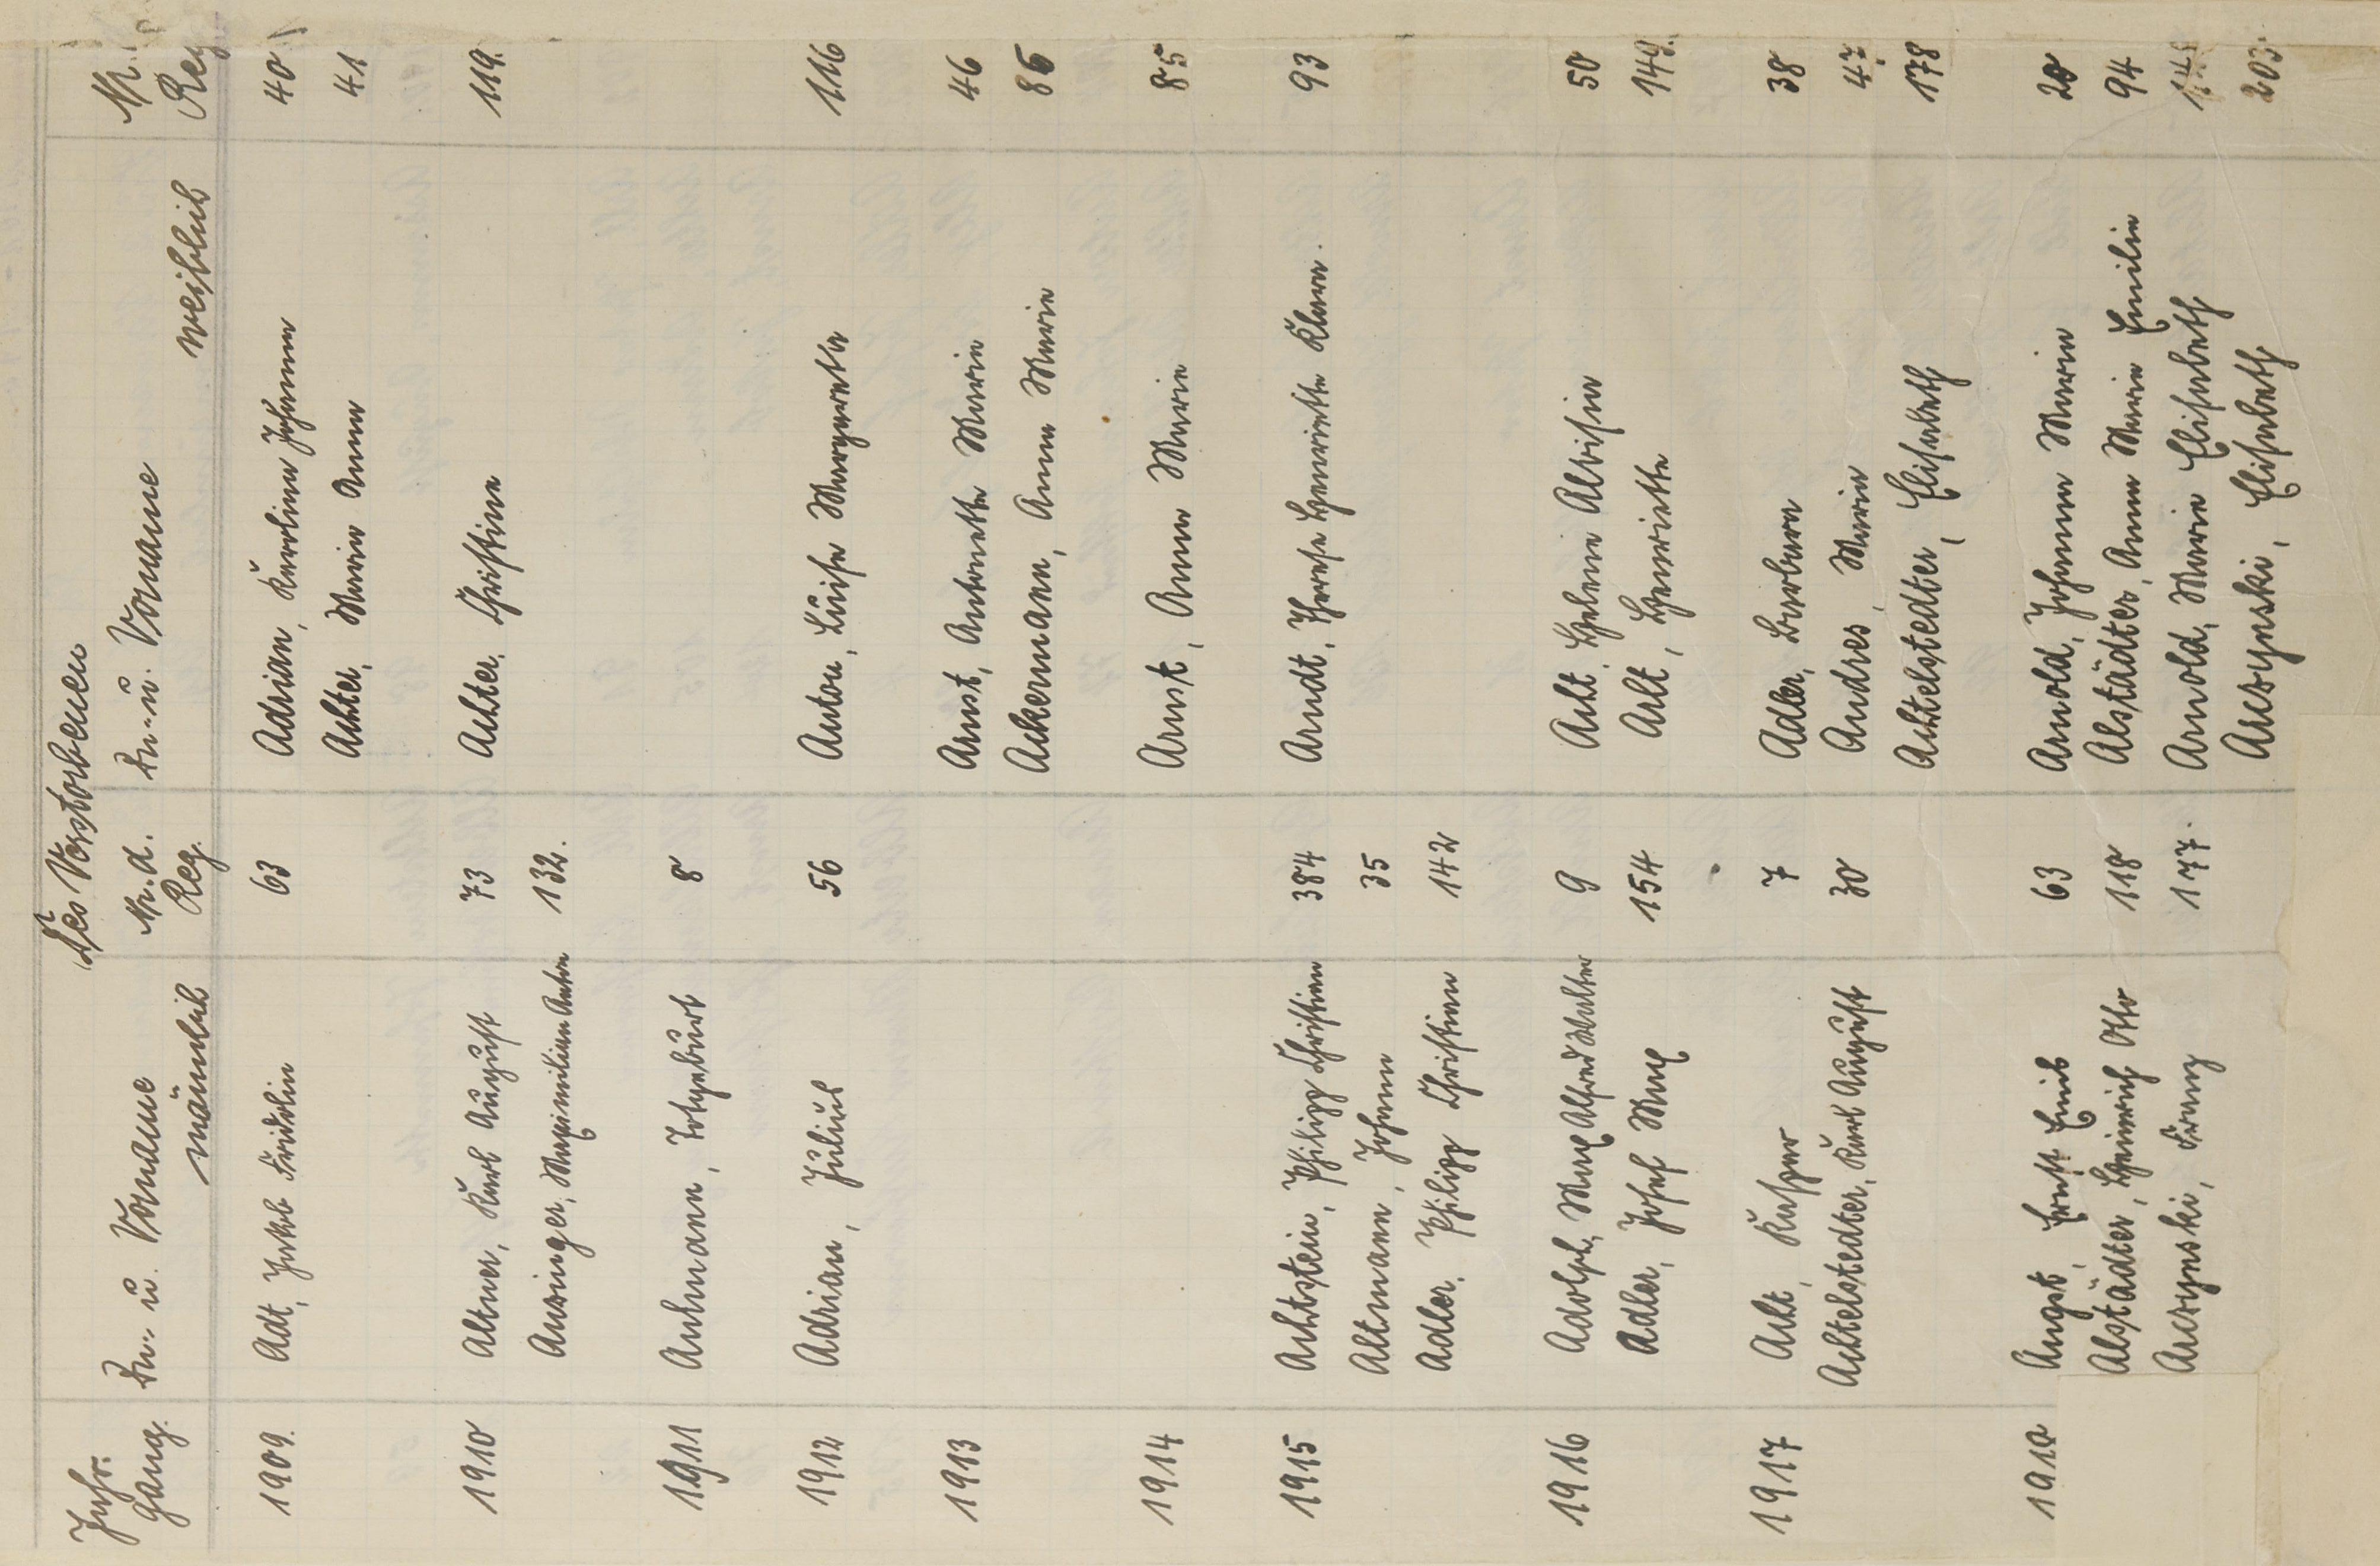 Des Verstorbenen
Jahr- Zu- u. Vorname Nr. d. Zu- u. Vorname Nr.
gang. männlich Reg. weiblich Reg
1909. Adt, Jakob Fridolin 63 Adrian, Karolina Johanna 40
Achter, Maria Anna 41
1910 Altner, Karl August 73 Achter, Christine 119.
Anninger, Maximilian Anton 132.
1911 Aulmann, 8
1912 Adrian, Julius 56 Anton, Luise Margaretha 116
1913 Arnst, Antonette Maria 46
Ackermann, Anna Maria 86
1914 Arnst, Anna Maria 85
1915 Achtstein, Philipp Christian 384 Arndt, Therese Henriette Klara. 93
Altmann, Johann 35
Adler, Philipp Christian 142
1916 Adolph, Max Alfred Walter 9 Acht, Helene Aloisia 50
Adler, Josef Max 154 Arlt, Henriette 149.
1917 Acht, Kaspar 7 Adler, Barbara 38
Achtelstedter, Karl August 30 Andres, Maria 47.
Achtelstedter, Elisabeth 178
1918 Angst, Ernst Emil 63 Arnold, Johanna Maria 20
Alstädter, Heinrich Otto 118 Alstädter, Anna Maria Emilie 94
Arczynski, Franz 177. Arnold, Maria Elisabeth 148
Arczynski, Elisabeth 203.